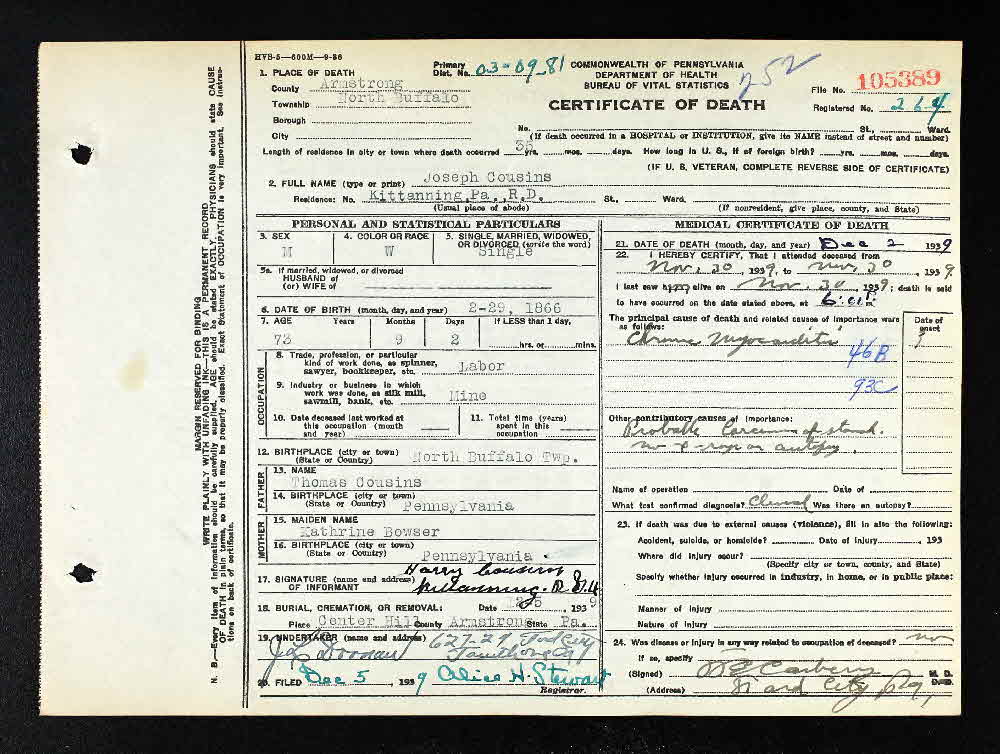 HVS-5—600M—9-36
Primary Dist. No. 03-09-81
COMMONWEALTH OF PENNSYLVANIA
DEPARTMENT OF HEALTH
BUREAU OF VITAL STATISTICS
252
CERTIFICATE OF DEATH
File No. 105389
Registered No. 264
1. PLACE OF DEATH
County Armstrong
Township North Buffalo
Borough
City
No. St., Ward.
(If death occurred in a HOSPITAL or INSTITUTION, give its NAME instead of street and number)
Length of residence in city or town where death occurred 35 yrs. mos. days. How long in U. S., if of foreign birth? yrs. mos. days.
(IF U. S. VETERAN, COMPLETE REVERSE SIDE OF CERTIFICATE)
2. FULL NAME (type or print) Joseph Cousins
Residence: No. Kittanning, Pa., R.D. St., Ward.
(Usual place of abode) (If nonresident, give place, county, and State)
PERSONAL AND STATISTICAL PARTICULARS
3. SEX M
4. COLOR OR RACE W
5. SINGLE, MARRIED, WIDOWED, OR DIVORCED (write the word) Single
5a. If married, widowed, or divorced
HUSBAND of
(or) WIFE of
6. DATE OF BIRTH (month, day, and year) 2-29, 1866
7. AGE Years Months Days If LESS than 1 day,
73 9 2 hrs. or mins.
OCCUPATION
8. Trade, profession, or particular kind of work done, as spinner, sawyer, bookkeeper, etc. Labor
9. Industry or business in which work was done, as silk mill, sawmill, bank, etc. Mine
10. Date deceased last worked at this occupation (month and year)
11. Total time (years) spent in this occupation
12. BIRTHPLACE (city or town) (State or Country) North Buffalo Twp.
FATHER
13. NAME
Thomas Cousins
14. BIRTHPLACE (city or town) (State or Country) Pennsylvania
MOTHER
15. MAIDEN NAME
Kathrine Bowser
16. BIRTHPLACE (city or town) (State or Country) Pennsylvania
17. SIGNATURE (name and address) OF INFORMANT Harry Cousins
Kittanning. R.D.4
18. BURIAL, CREMATION, OR REMOVAL: Date 12/5 1939
Place Center Hill County Armstrong State Pa.
19. UNDERTAKER (name and address) 627-29 Ford City
20. FILED Dec 5, 1939 Alice H. Stewart
Registrar.
MEDICAL CERTIFICATE OF DEATH
21. DATE OF DEATH (month, day, and year) Dec 2 1939
22. I HEREBY CERTIFY, That I attended deceased from
Nov. 30, 1939, to Nov. 30, 1939.
I last saw him alive on Nov. 30, 1939; death is said
to have occurred on the date stated above, at m.
The principal cause of death and related causes of importance were as follows:
Date of onset
Chronic Myocarditis ?
46B
93C
Other contributory causes of importance:
Probable Carcinoma of stomach.
no x-ray or autopsy.
Name of operation Date of
What test confirmed diagnosis? Clinical Was there an autopsy?
23. If death was due to external causes (violence), fill in also the following:
Accident, suicide, or homicide? Date of injury , 193
Where did injury occur?
(Specify city or town, county, and State)
Specify whether injury occurred in industry, in home, or in public place:
Manner of injury
Nature of injury
24. Was disease or injury in any way related to occupation of deceased? no
If so, specify
(Signed) M. D.
(Address) Ford City Pa,
MARGIN RESERVED FOR BINDING
WRITE PLAINLY, WITH UNFADING INK—THIS IS A PERMANENT RECORD
N. B.—Every item of information should be carefully supplied. AGE should be stated EXACTLY. PHYSICIANS should state CAUSE
OF DEATH in plain terms, so that it may be properly classified. Exact Statement of OCCUPATION is very important. See instructions on back of certificate.